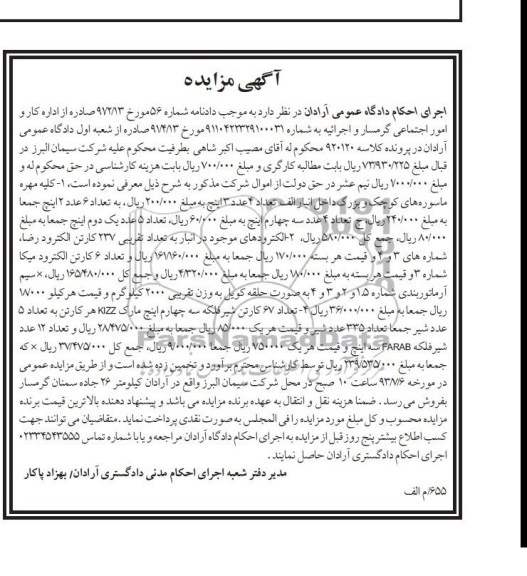 آگهی مزایده
اجرای احکام دادگاه عمومی آرادان در نظر دارد به موجب دادنامه شماره ۵۶ مورخ ۹۲/۷/۱۳ صادره از اداره کار و
امور اجتماعی گرمسار و اجرائیه به شماره ۹۱۱۰۴۲۲۳۲۹۱۰۰۰۳۱ مورخ ۹۱/۴/۱۳ صادره از شعبه اول دادگاه عمومی
آرادان در پرونده کلاسه ۹۲۰۱۲۰ محکوم له آقای مصیب اکبر شاهی بطرفیت محکوم علیه شرکت سیمان البرز در
قبال مبلغ ۷۳/۹۳۰/۲۲۵ ریال بابت مطالبه کارگری و مبلغ ۷۰۰/۰۰۰ ریال بابت هزینه کارشناسی در حق محکوم له و
مبلغ ۷/۰۰۰/۰۰۰ ریال نیم عشر در حق دولت از اموال شرکت مذکور به شرح ذیل معرفی نموده است، ۱-کلیه مهره
ماسوره‌های کوچک و بزرگ داخل انبار الف تعداد ۴ عدد ۳ اینچ به مبلغ ۲۰۰/۰۰۰ ریال، به تعداد ۶ عدد ۲ اینچ جمعا
به مبلغ ۲۴۰/۰۰۰ ریال، ج تعداد ۴ عدد سه چهارم اینچ به مبلغ ۶۰/۰۰۰ ریال، تعداد ۵ عدد یک دوم اینچ جمعا به مبلغ
۸۰/۰۰۰ ریال، جمع کل ۵۸۰/۰۰۰ ریال، ۲-الکترودهای موجود در انبار به تعداد تقریبی ۲۳۷ کارتن الکترود رضا،
شماره های ۳ و ۴ و قیمت هر بسته ۱۷۰/۰۰۰ ریال جمعا به مبلغ ۱۶۱/۱۶۰/۰۰۰ ریال و تعداد ۶ کارتن الکترود میکا
شماره ۳ و قیمت هر بسته به مبلغ ۱۸۰/۰۰۰ ریال جمعا به مبلغ ۴/۳۲۰/۰۰۰ ریال و جمع کل ۱۶۵/۴۸۰/۰۰۰ ریال، × سیم
آرماتوربندی شماره ۱.۵ و ۲ و ۳ و ۴ به صورت حلقه کویل به وزن تقریبی ۲۰۰۰ کیلوگرم و قیمت هر کیلو ۱۸/۰۰۰
ریال جمعا به مبلغ ۳۶/۰۰۰/۰۰۰ ریال ۴-تعداد ۶۷ کارتن شیرفلکه سه چهارم اینچ مارک KIZZ هر کارتن به تعداد ۵
عدد شیر جمعا تعداد ۳۳۵ عدد شیر و قیمت هر یک ۸۵/۰۰۰ ریال جمعا به مبلغ ۲۸/۴۷۵/۰۰۰ ریال و تعداد ۱۲ عدد
شیر فلکه FARAB سه اینچ و قیمت هر یک ۷۵۰/۰۰۰ ریال جمعا ۹/۰۰۰/۰۰۰ ریال، جمع کل ۳۷/۴۷۵/۰۰۰ ریال × که
۲۳۹/۵۳۵/۰۰۰ ریال توسط کارشناس محترم برآورد و تخمین زده شده است و از طریق مزایده عمومی
در مورخه ۹۳/۷/۶ ساعت ۱۰ صبح در محل شرکت سیمان البرز واقع در آرادان کیلومتر ۲۶ جاده سمنان گرمسار
بفروش می‌رسد . ضمنا هزینه نقل و انتقال به عهده برنده مزایده می باشد و پیشنهاد دهنده بالاترین قیمت برنده
مزایده محسوب و کل مبلغ مورد مزایده را فی المجلس به صورت نقدی پرداخت نماید . متقاضیان می توانند جهت
کسب اطلاع بیشتر پنج روز قبل از مزایده به اجرای احکام دادگاه آرادان مراجعه و یا با شماره تماس ۰۲۳۳۴۵۴۳۵۵۵
اجرای احکام دادگستری آرادان حاصل نمایند .
مدیر دفتر شعبه اجرای احکام مدنی دادگستری آرادان/ بهزاد پاکار
۶۵۵/م الف
ParsNamadData